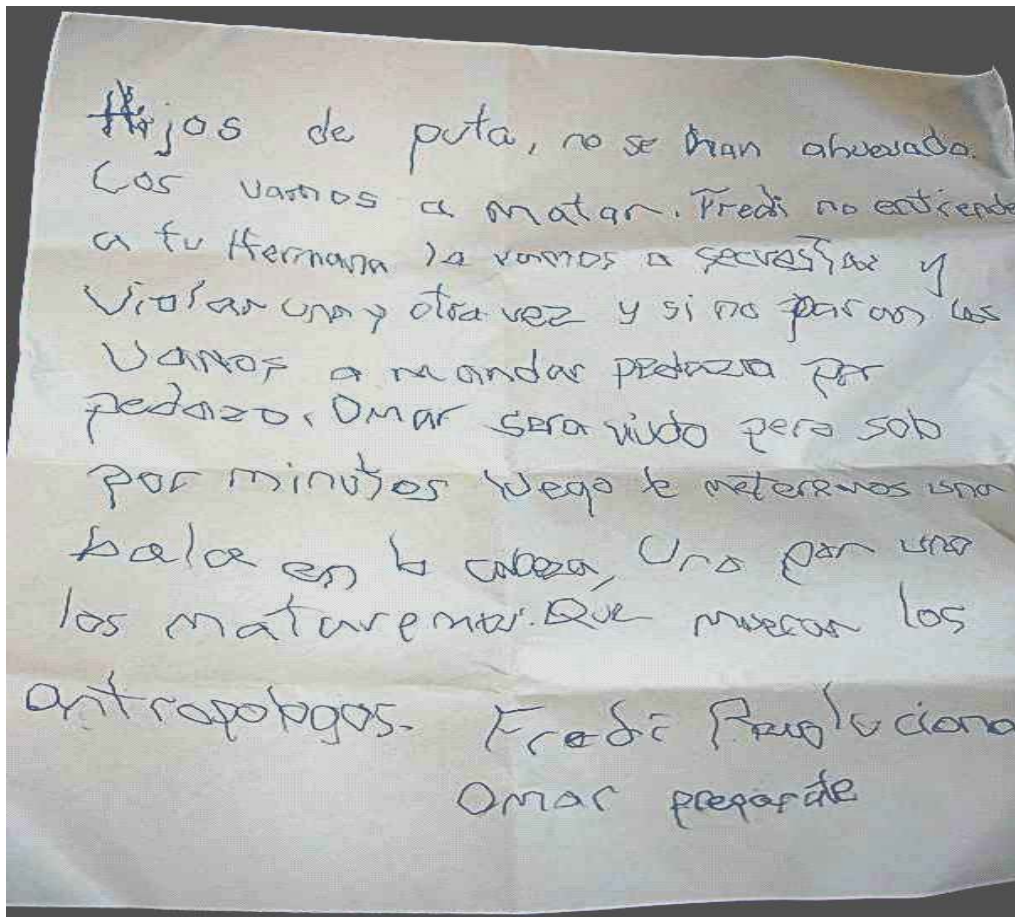 Hijos de puta, no se han ahuevado.
Los vamos a matar. Fredi no entiende
a tu Hermana la vamos a secuestrar y
violar una y otra vez y si no paran las
vamos a mandar pedazo por
pedazo. Omar sera viudo pero solo
por minutos luego le meteremos una
bala en la cabeza, Uno por uno
los mataremos. Que mueran los
antropologos. Fredi
Omar preparate